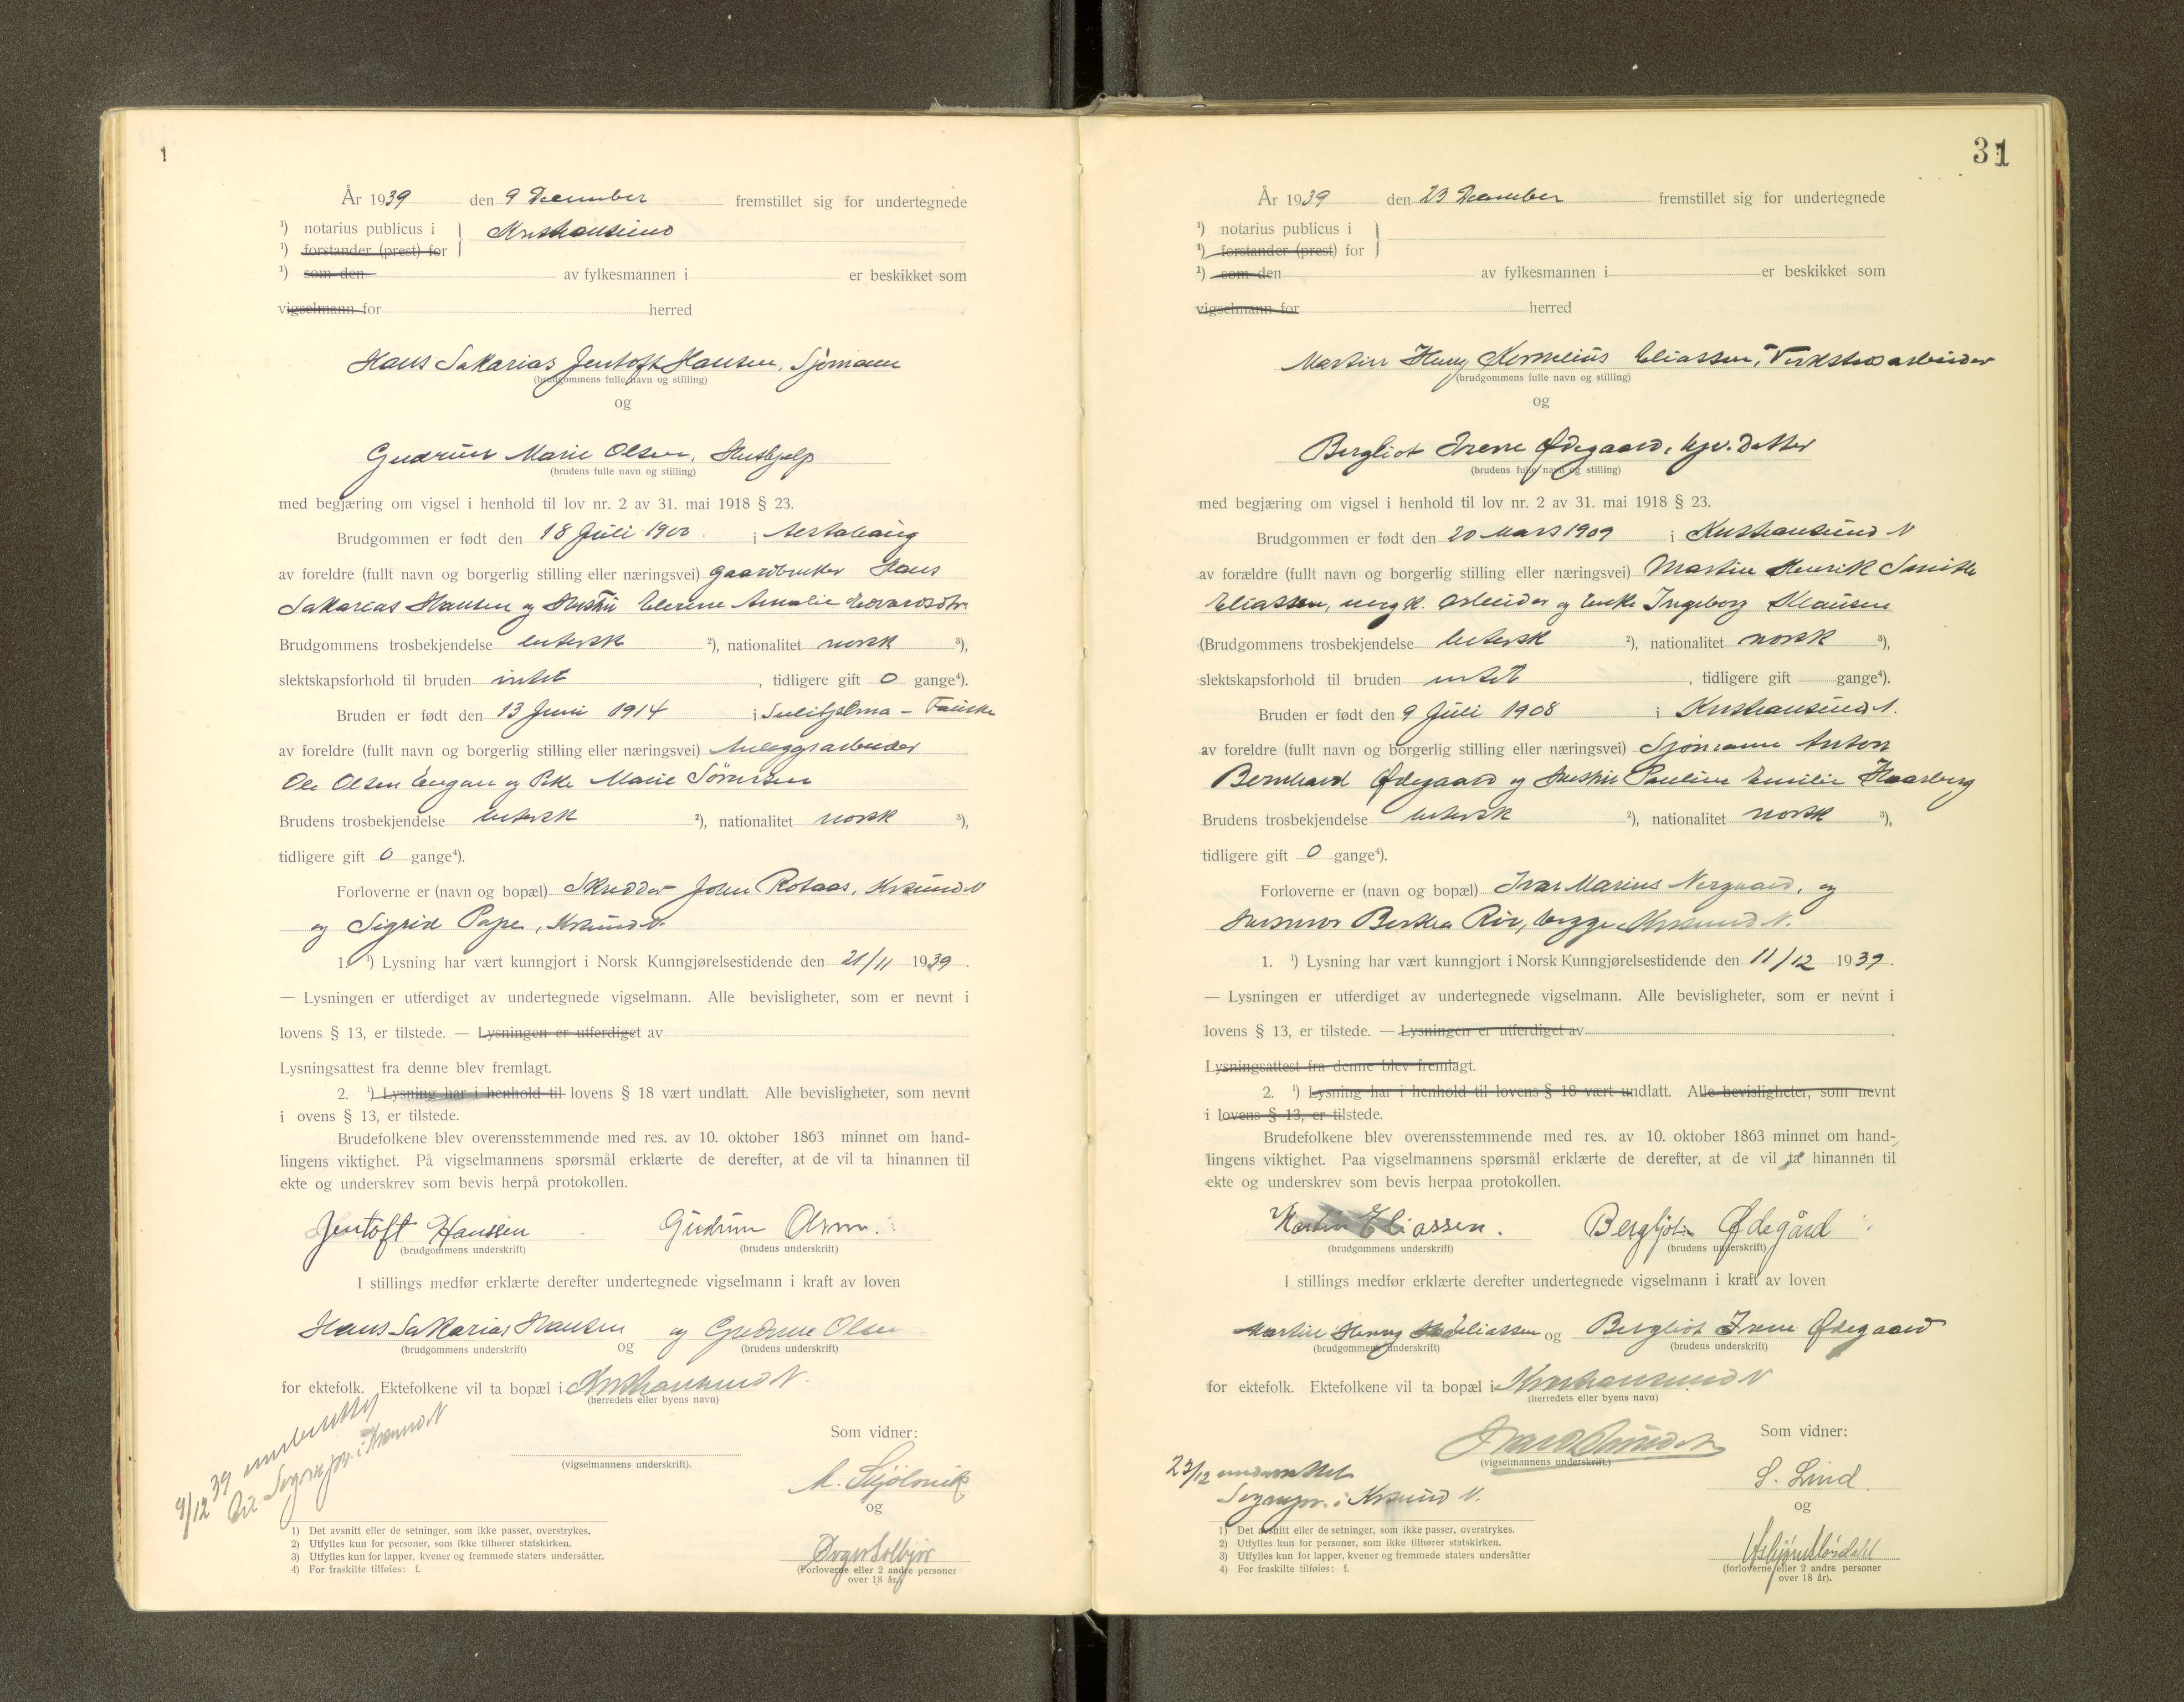 1
År 1939 den 9 December fremstillet sig for undertegnede
¹) notarius publicus i } Kristiansund
¹) forstander (prest) for
¹) som den av fylkesmannen i er beskikket som
vigselmann for herred
Hans Sakarias Jentoft Hansen, Sjømann
(brudgommens fulle navn og stilling)
og
Gudrun Marie Olsen, Hushjelp
(brudens fulle navn og stilling)
med begjæring om vigsel i henhold til lov nr. 2 av 31. mai 1918 § 23.
Brudgommen er født den 18 Juli 1900. i Alstahaug
av foreldre (fullt navn og borgerlig stilling eller næringsvei) Gaardbruker Hans
Sakarias Hansen og Hustru Elerine Amalie Edvardsdtr.
Brudgommens trosbekjendelse luthersk ²), nationalitet norsk ³),
slektskapsforhold til bruden intet, tidligere gift 0 gange⁴).
Bruden er født den 13 Juni 1914 i Sulitjelma - Fauske
av foreldre (fullt navn og borgerlig stilling eller næringsvei) Anleggsarbeider
Ole Olsen Engan og Pike Marie Sørensen
Brudens trosbekjendelse luthersk ²), nationalitet norsk ³),
tidligere gift 0 gange⁴).
Forloverne er (navn og bopæl) Skredder John Rotaas, Krsund N
og Sigrid Pape, Krsund N.
1. ¹) Lysning har vært kunngjort i Norsk Kunngjørelsestidende den 21/11 1939.
— Lysningen er utferdiget av undertegnede vigselmann. Alle bevisligheter, som er nevnt i
lovens § 13, er tilstede. — Lysningen er utferdiget av
Lysningsattest fra denne blev fremlagt.
2. ¹) Lysning har i henhold til lovens § 18 vært undlatt. Alle bevisligheter, som nevnt
i ovens § 13, er tilstede.
Brudefolkene blev overensstemmende med res. av 10. oktober 1863 minnet om hand-
lingens viktighet. På vigselmannens spørsmål erklærte de derefter, at de vil ta hinannen til
ekte og underskrev som bevis herpå protokollen.
Jentoft Hanssen Gudrun Olsen.
(brudgommens underskrift) (brudens underskrift)
I stillings medfør erklærte derefter undertegnede vigselmann i kraft av loven
Hans Sakarias Hansen og Gudrun Olsen
(brudgommens underskrift) og (brudens underskrift)
for ektefolk. Ektefolkene vil ta bopæl i Kristiansund N.
(herredets eller byens navn)
9/12 39 underrettet
Sognepr. i Krsund N
Som vidner:
(vigselmannens underskrift).
og
(Forloverne eller 2 andre personer
over 18 år)
1) Det avsnitt eller de setninger, som ikke passer, overstrykes.
2) Utfylles kun for personer, som ikke tilhører statskirken.
3) Utfylles kun for lapper, kvener og fremmede staters undersåtter.
4) For fraskilte tilføies: f.
31
År 1939 den 23 December fremstillet sig for undertegnede
¹) notarius publicus i }
¹) forstander (prest) for
¹) som den av fylkesmannen i er beskikket som
vigselmann for herred
Martin Henry Kornelius Eliassen, Verkstedsarbeider
(brudgommens fulle navn og stilling)
og
Bergliot Irene Ødegaard, hjv. datter
(brudens fulle navn og stilling)
med begjæring om vigsel i henhold til lov nr. 2 av 31. mai 1918 § 23.
Brudgommen er født den 20 Mars 1909 i Kristiansund N
av forældre (fullt navn og borgerlig stilling eller næringsvei) Martin Henrik Smith
Eliassen, arbeider og Enke Ingeborg Klausen
(Brudgommens trosbekjendelse luthersk ²), nationalitet norsk ³),
slektskapsforhold til bruden intet, tidligere gift gange⁴).
Bruden er født den 9 Juli 1908 i Kristiansund N.
av foreldre (fullt navn og borgerlig stilling eller næringsvei) Sjømann Anton
Bernhard Ødegaard og Hustru Pauline Emilie Haarberg
Brudens trosbekjendelse luthersk ²), nationalitet norsk ³),
tidligere gift 0 gange⁴).
Forloverne er (navn og bopæl) Ivar Marius Nergaard, og
Husmor Berthea Rør, begge Krsund N.
1. ¹) Lysning har vært kunngjort i Norsk Kunngjørelsestidende den 11/12 1939.
— Lysningen er utferdiget av undertegnede vigselmann. Alle bevisligheter, som er nevnt i
lovens § 13, er tilstede. — Lysningen er utferdiget av
Lysningsattest fra denne blev fremlagt.
2. ¹) Lysning har i henhold til lovens § 18 vært undlatt. Alle bevisligheter, som nevnt
i lovens § 13, er tilstede.
Brudefolkene blev overensstemmende med res. av 10. oktober 1863 minnet om hand-
lingens viktighet. Paa vigselmannens spørsmål erklærte de derefter, at de vil ta hinannen til
ekte og underskrev som bevis herpaa protokollen.
Martin Eliassen. Bergljot Ødegård
(brudgommens underskrift) (brudens underskrift)
I stillings medfør erklærte derefter undertegnede vigselmann i kraft av loven
Martin Henry Eliassen og Bergliot Irene Ødegaard
(brudgommens underskrift) (brudens underskrift)
for ektefolk. Ektefolkene vil ta bopæl i Kristiansund N
(herredets eller byens navn)
Som vidner:
(vigselmannens underskrift.)
23/12 underrettet
Sognepr. i Krsund N.
S. Lind
og
(forloverne eller 2 andre personer
over 18 år).
1) Det avsnitt eller de setninger, som ikke passer, overstrykes.
2) Utfylles kun for personer, som ikke tilhører statskirken.
3) Utfylles kun for lapper, kvener og fremmede staters undersåtter
4) For fraskilte tilføies: f.